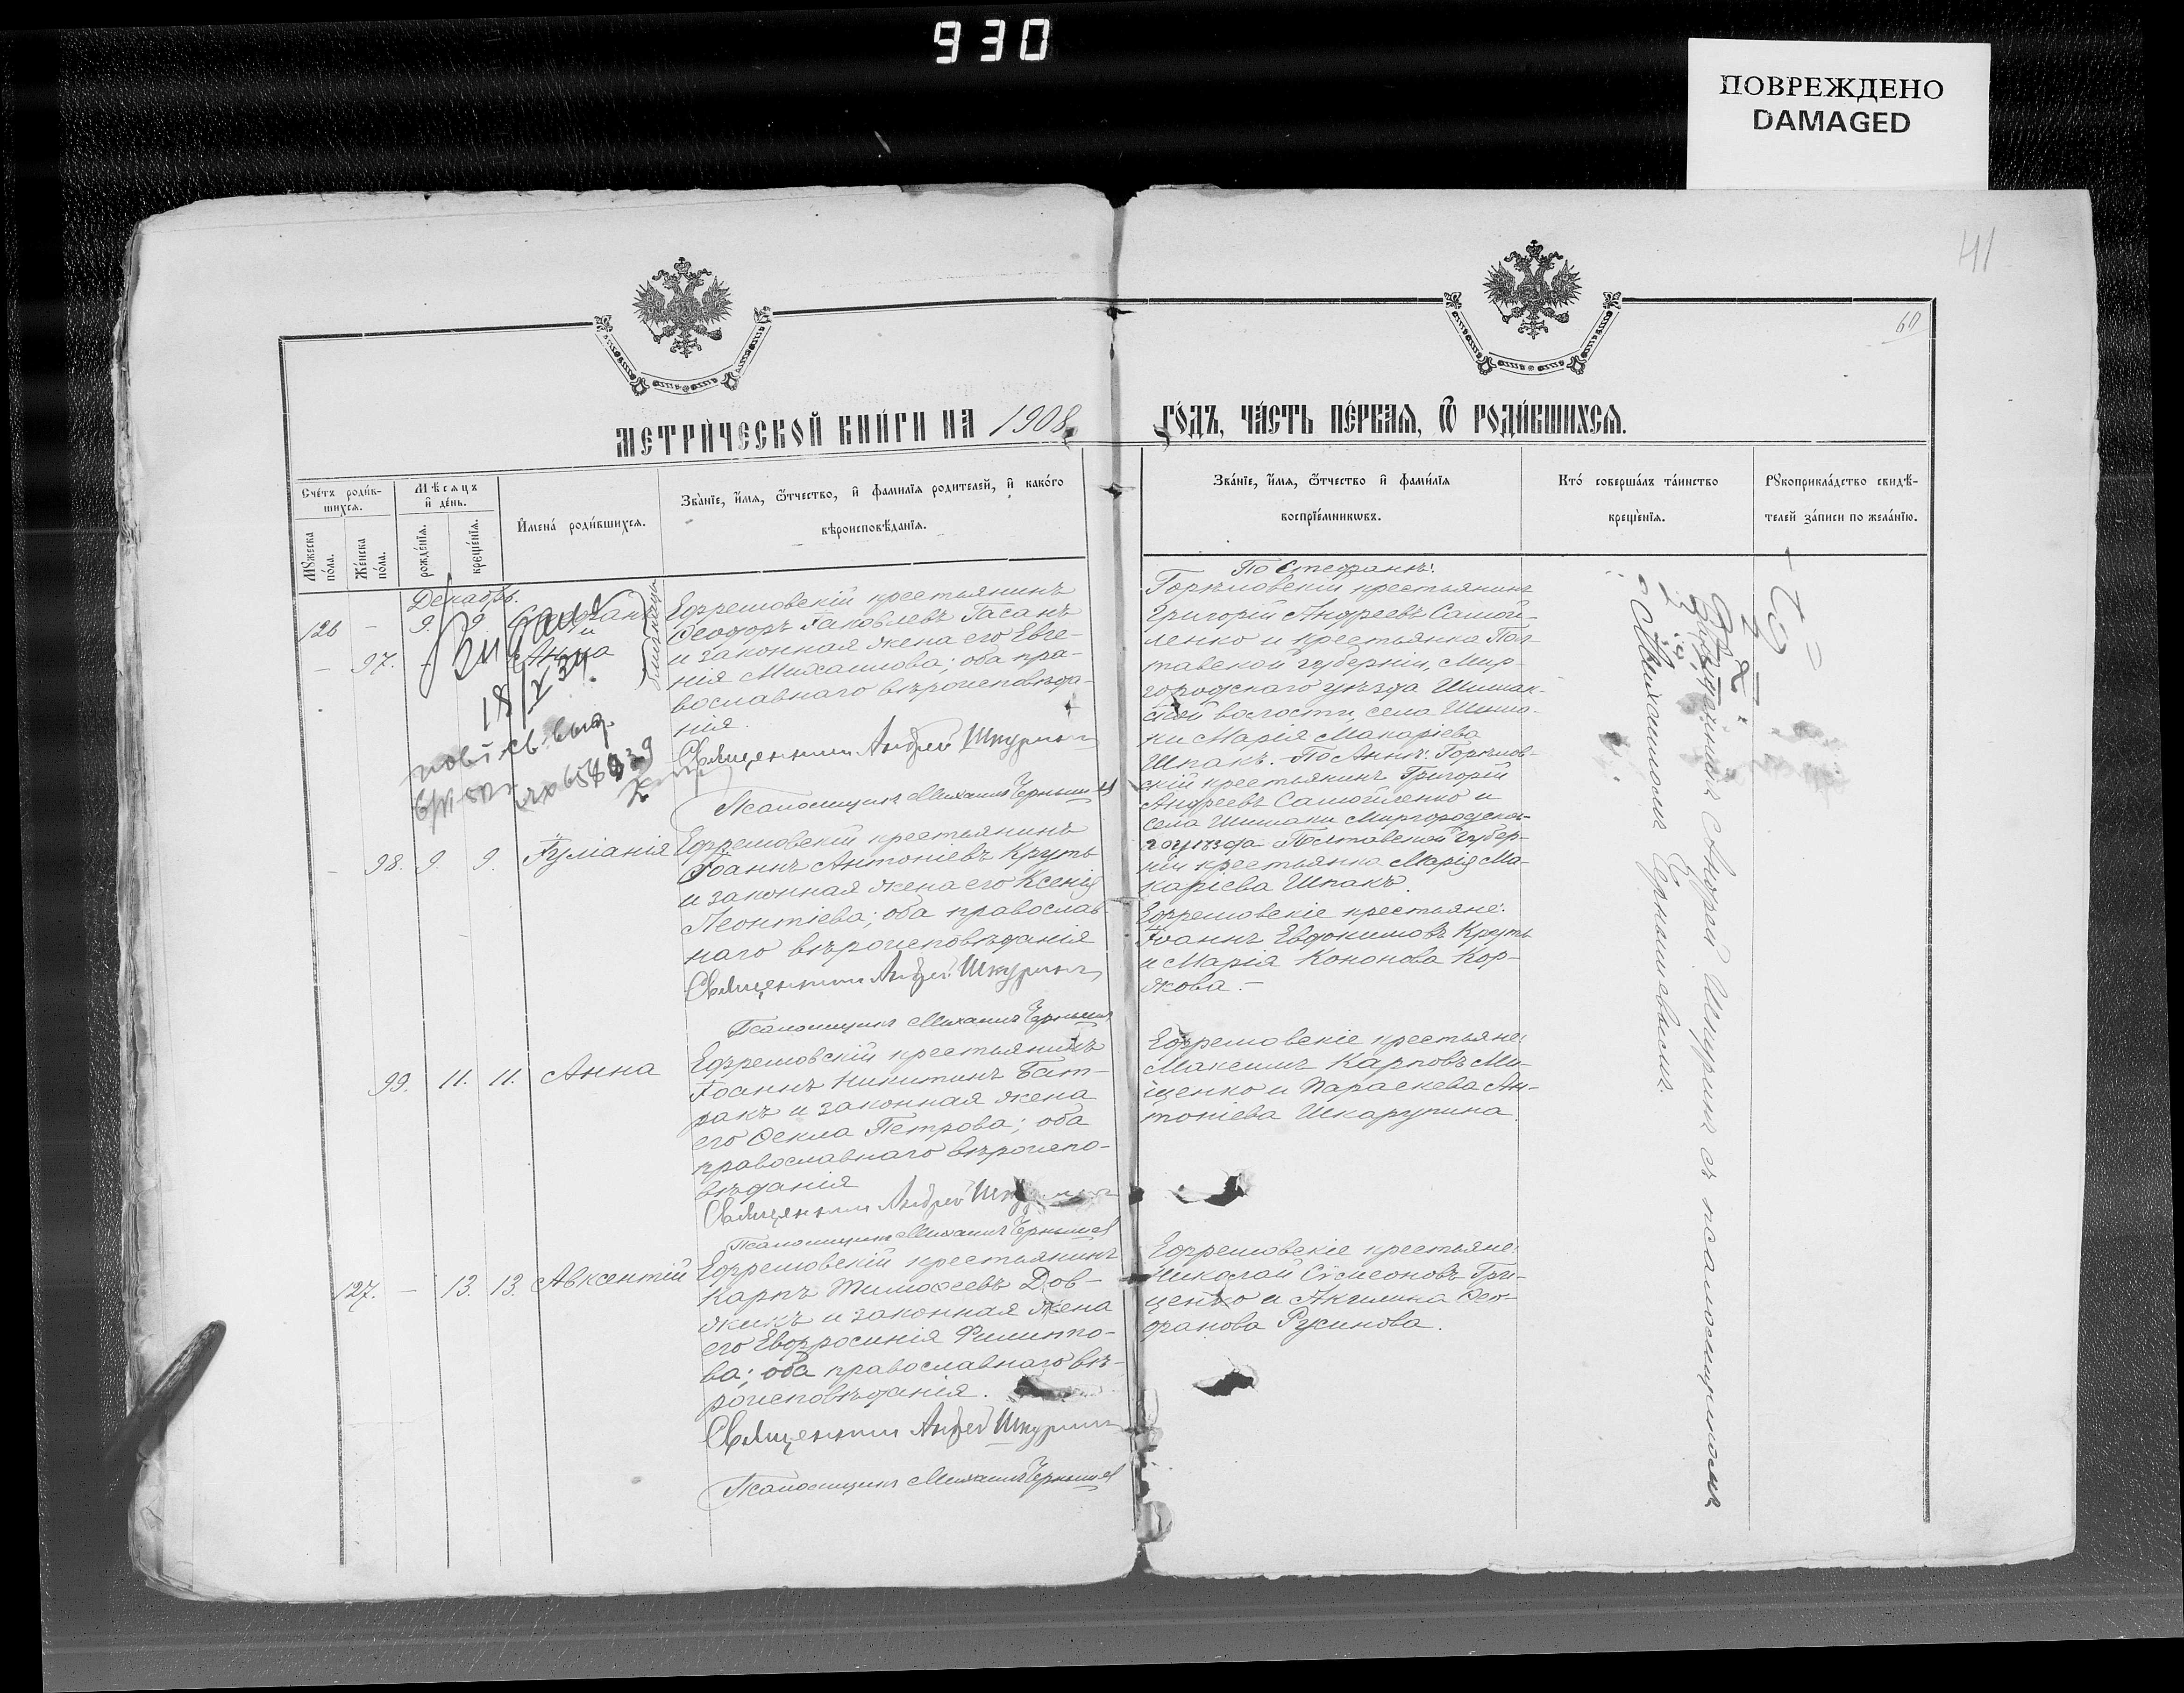 930
ПОВРЕЖДЕНО
DAMAGED
41
60
МЕТРИ́ЧЕСКОЙ КНИ́ГИ НА 1908
ГО́ДЪ, ЧА́СТЬ ПЕ́РВАѦ, Ѿ РОДИ́ВШИХСѦ.
Сче́тъ роди́в-
шихсѧ.
Мꙋжеска по́ла.
Же́нска по́ла.
Мѣсяцъ и҆ де́нь.
рожде́нїѧ.
креще́нїѧ.
И҆мена̀ роди́вшихсѧ.
Зва́нїе, и҆́мѧ, ѻ҆́тчество, и҆ фами́лїѧ родителей, и҆ како́го
вѣроисповѣ́данїѧ.
Зва́нїе, и҆́мѧ, ѻ҆́тчество и҆ фами́лїѧ
воспрїе́мникѡвъ.
Кто́ соверша́лъ та́инство
креще́нїѧ.
Рꙋкоприкла́дство свидѣ́-
телей за́писи по жела́нїю.
Декабрь.
126 - 9. 9. Стефанъ
и
- 97. Анна
близнецы
18/X 34.
Ефремовскій крестьянинъ
Ѳеодоръ Іаковлевъ Гасанъ
и законная жена его Евге-
нія Михаилова; оба пра-
вославнаго вѣроисповѣда-
нія.
Священникъ Андрей Шкуринъ
Псаломщикъ Михаилъ Чернышевъ
По Стефанѣ:
Горѣловскій крестьянинъ
Григорій Андреевъ Самой-
ленко и крестьянка Пол-
тавской губерніи, Мир-
городскаго уѣзда Шишак-
ской волости, села Шиша-
ки Марія Макаріева
Шпакъ. - По Аннѣ: Горѣлов-
скій крестьянинъ Григорій
Андреевъ Самойленко и
села Шишаки Миргородска-
го уѣзда Полтавской губер-
ніи крестьянка Марія Ма-
каріева Шпакъ.
- 98. 9. 9. Іуліанія
Ефремовскій крестьянинъ
Іоаннъ Антоніевъ Круть
и законная жена его Ксенія
Леонтіева; оба православ-
наго вѣроисповѣданія
Священникъ Андрей Шкуринъ
Псаломщикъ Михаилъ Чернышевъ
Ефремовскіе крестьяне:
Іоаннъ Евдокимовъ Круть
и Марія Кононова Кор-
жова. -
99. 11. 11. Анна
Ефремовскій крестьянинъ
Іоаннъ Никитинъ Бат-
ракъ и законная жена
его Ѳекла Петрова; оба
православнаго вѣроиспо-
вѣданія
Священникъ Андрей
Псаломщикъ Михаилъ Чернышевъ
Ефремовскіе крестьяне:
Максимъ Карповъ Ми-
щенко и Параскева Ан-
тоніева Шкарупина.
127. - 13. 13. Авксентій
Ефремовскій крестьянинъ
Карпъ Тимоѳеевъ Дов-
жикъ и законная жена
его Евфросинія Филиппо-
ва; оба православнаго вѣ-
роисповѣданія.
Священникъ Андрей Шкуринъ
Псаломщикъ Михаилъ Чернышевъ
Ефремовскіе крестьяне:
Николай Сѵмеоновъ Гри-
ценко и Акилина Ѳео-
фанова Русинова.
Священникъ Андрей Шкуринъ съ псаломщикомъ
Михаиломъ Чернышевымъ.